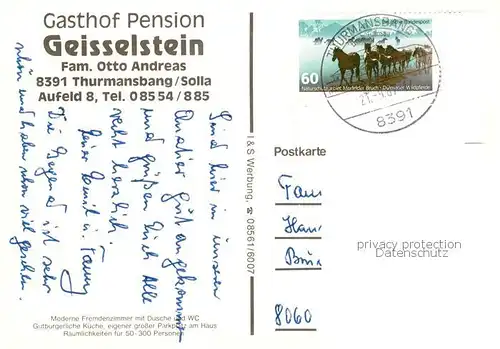 Gasthof Pension
Geisselstein
Fam. Otto Andreas
8391 Thurmansbang/Solla
Aufeld 8, Tel. 08554/885
Sind hier in unseren
Quatier gut angekommen
und grüßen Euch Alle
recht herzlich.
Deine Emmi u. Fanny
Die Gegend ist sehr
schön und haben schon viel gesehen.
Moderne Fremdenzimmer mit Dusche und WC
Gutbürgerliche Küche, eigener großer Parkplatz am Haus
Räumlichkeiten für 50-300 Personen
I & S Werbung, ☎ 08561/6007
Deutsche Bundespost
60
Naturschutzgebiet Merfelder Bruch · Dülmener Wildpferde
THURMANSBANG
8391
Postkarte
Fam
8060
privacy protection
Datenschutz